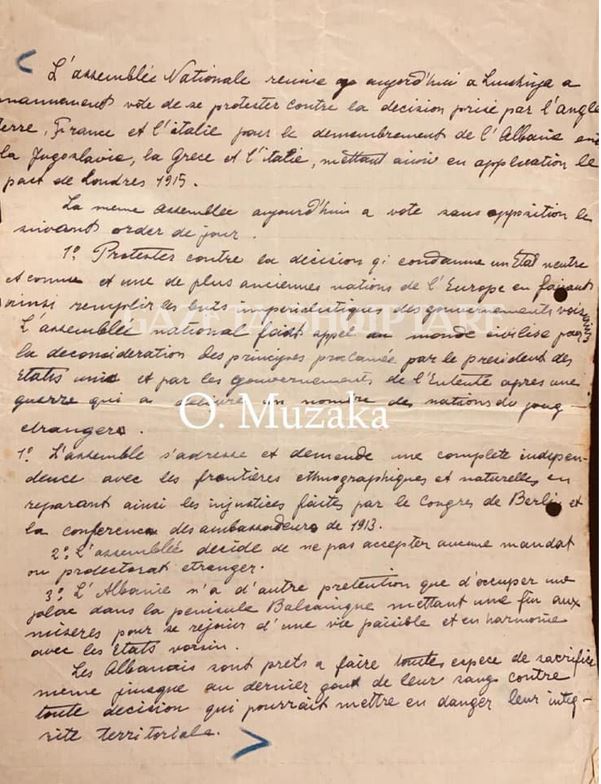 L'assemblée Nationale reunie aujord'hui a Lushnja a
nanement vote de se protester contre la decision prise par l'angle
terre, France et l'italie pour le demembrement de l'Albanie
la Jugoslavie, la Grece et l'italie, mettant ainsi en application le
pact de Londres 1915.
La meme assemblée aujourd'hui a vote sans opposition le
suivant order de jour.
1º Protester contre la decision qi condamne un Etat neutre
et connue et une de plus anciennes nations de l'Europe en faisant
ainsi remplir les buts imperialistiques des gouvernements voisins
L'assemblée national faist appel au monde civilise pour
la deconsideration des principes proclamée par le president des
Etats unis et par les gouvernements de l'Entente apres une
guerre qui a delivre un nombre des nations du joug
etrangere.
1º L'assemble s'adresse et demende une complete indepen-
dence avec les frontières ethnographiques et naturelles en
reparant ainsi les injustices faites par le Congres de Berlin et
la conference des ambassadeurs de 1913.
2º L'assemblée decide de ne pas accepter aucune mandat
ou protectorat etranger.
3º L'Albanie n'a d'autre pretention que d'occuper une
place dans la peninsule Balcanique mettant une fin aux
miseres pour se rejouir d'une vie paisible et en harmonie
avec les Etats voisin.
Les Albanais sont prets a faire toutes espece de sacrifice
meme jusque au dernier gout de leur sangs contre
toute decision qui pourrait mettre en danger leur integ-
rite territoriale.
GAZETA SHQIPTARE
O. Muzaka